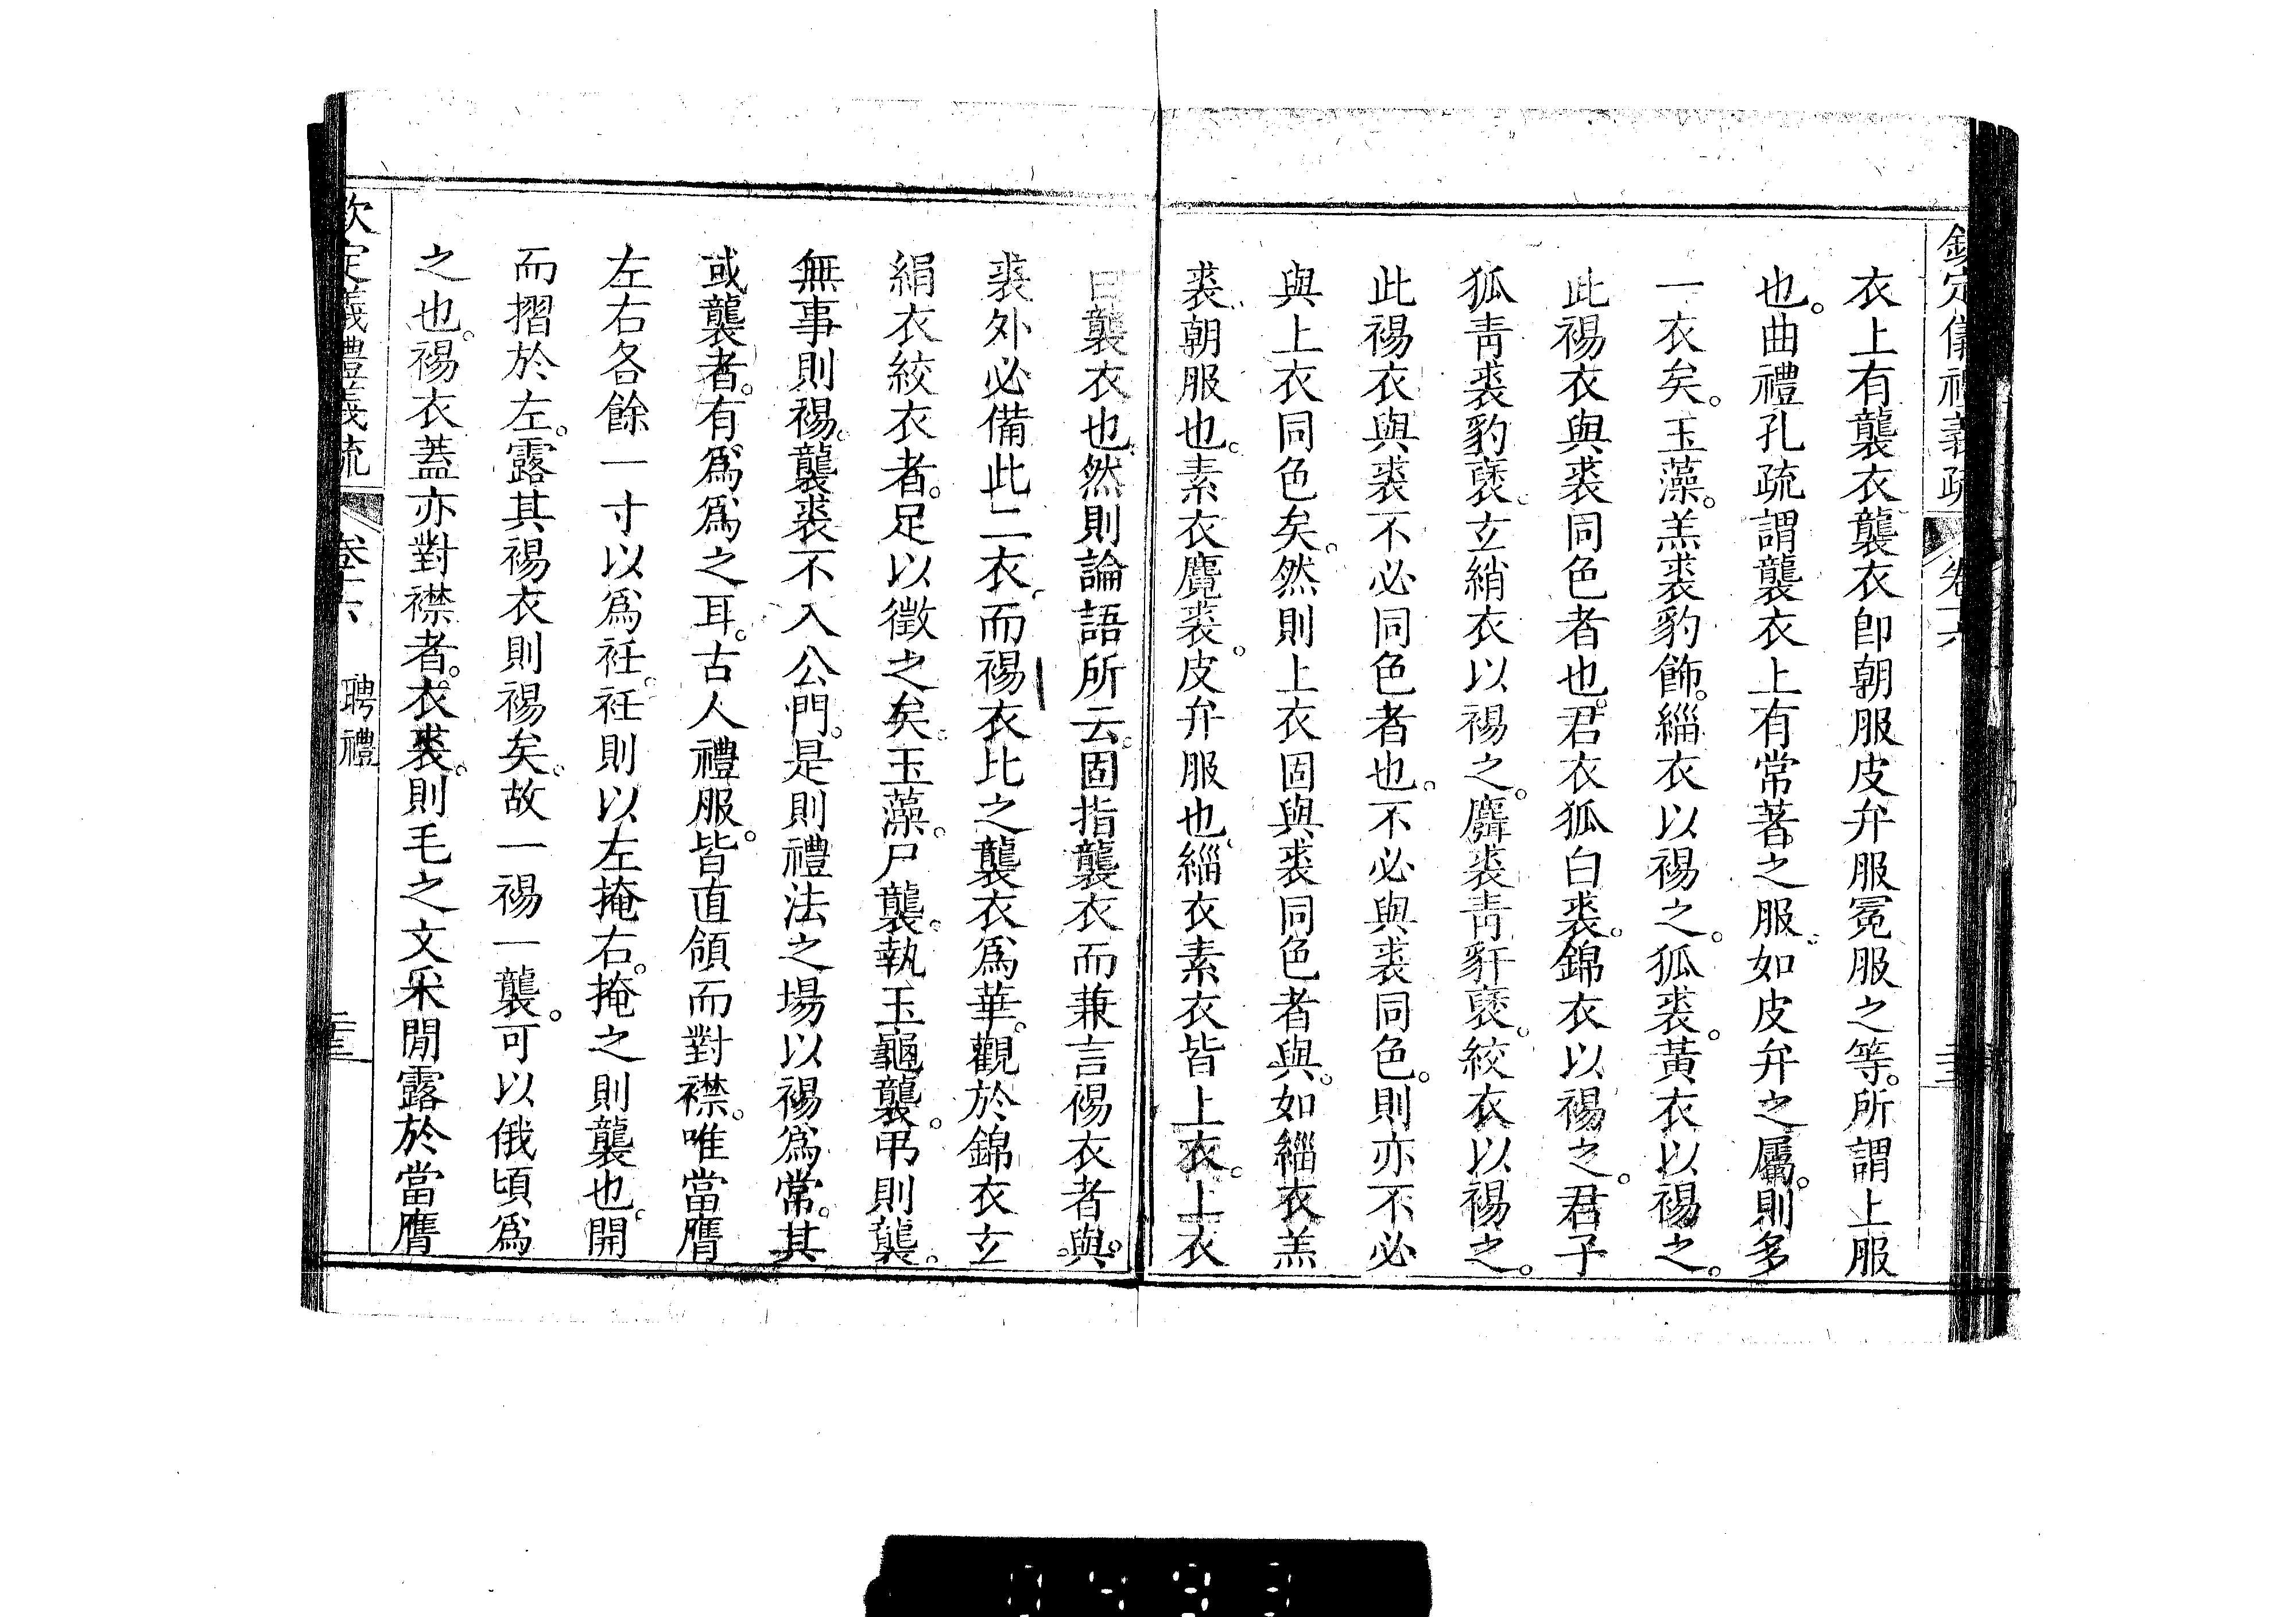 欽定儀禮義疏 卷十六
衣上有襲衣襲衣卽朝服皮弁服冕服之等。所謂上服
也。曲禮孔疏謂襲衣上有常著之服。如皮弁之屬。則多
一衣矣。玉藻。羔裘豹飾。緇衣以裼之。狐裘。黃衣以裼之。
此裼衣與裘同色者也。君衣狐白裘。錦衣以裼之。君子
狐靑裘豹褎。玄綃衣以裼之。麛裘靑豻褎。絞衣以裼之。
此裼衣與裘不必同色者也。不必與裘同色。則亦不必
與上衣同色矣。然則上衣固與裘同色者與。如緇衣羔
裘。朝服也。素衣麑裘。皮弁服也。緇衣素衣皆上衣。上衣
曰襲衣也。然則論語所云。固指襲衣而兼言裼衣者與。
裘外必備此二衣。而裼衣比之襲衣爲華。觀於錦衣玄
絹衣絞衣者。足以徵之矣。玉藻。尸襲。執玉龜襲。弔則襲。
無事則裼。襲裘不入公門。是則禮法之場以裼爲常。其
或襲者。有爲爲之耳。古人禮服。皆直領而對襟。唯當膺
左右各餘一寸以爲衽。衽則以左掩右。掩之則襲也。開
而摺於左。露其裼衣則裼矣。故一裼一襲。可以俄頃爲
之也。裼衣蓋亦對襟者。衣裘。則毛之文采閒露於當膺
欽定儀禮義疏 卷十六 聘禮 二十三